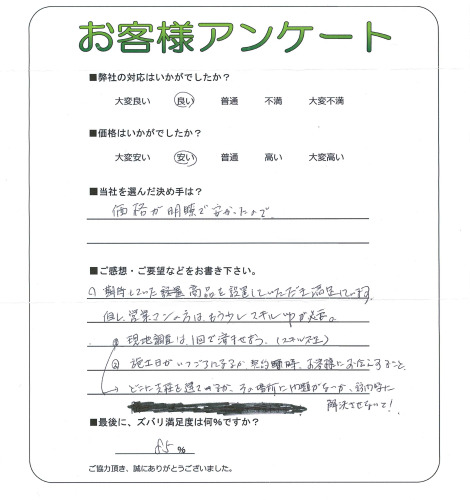 お客様アンケート
■弊社の対応はいかがでしたか?
大変良い 良い 普通 不満 大変不満
■価格はいかがでしたか?
大変安い 安い 普通 高い 大変高い
■当社を選んだ決め手は?
価格が明瞭で安かったので
■ご感想・ご要望などをお書き下さい。
期待していた設置商品を設置していただき満足しています。
但し、営業マンの方はもう少しスキルUPが必要。
現地調査は1回で済ませよう。(スキル不足)
施工日がいつごろになるか、契約時、お客様にお伝えすること。
どこに支柱を建てるか、その場所に問題がないか、
解決させないで!
■最後に、ズバリ満足度は何%ですか?
85%
ご協力頂き、誠にありがとうございました。